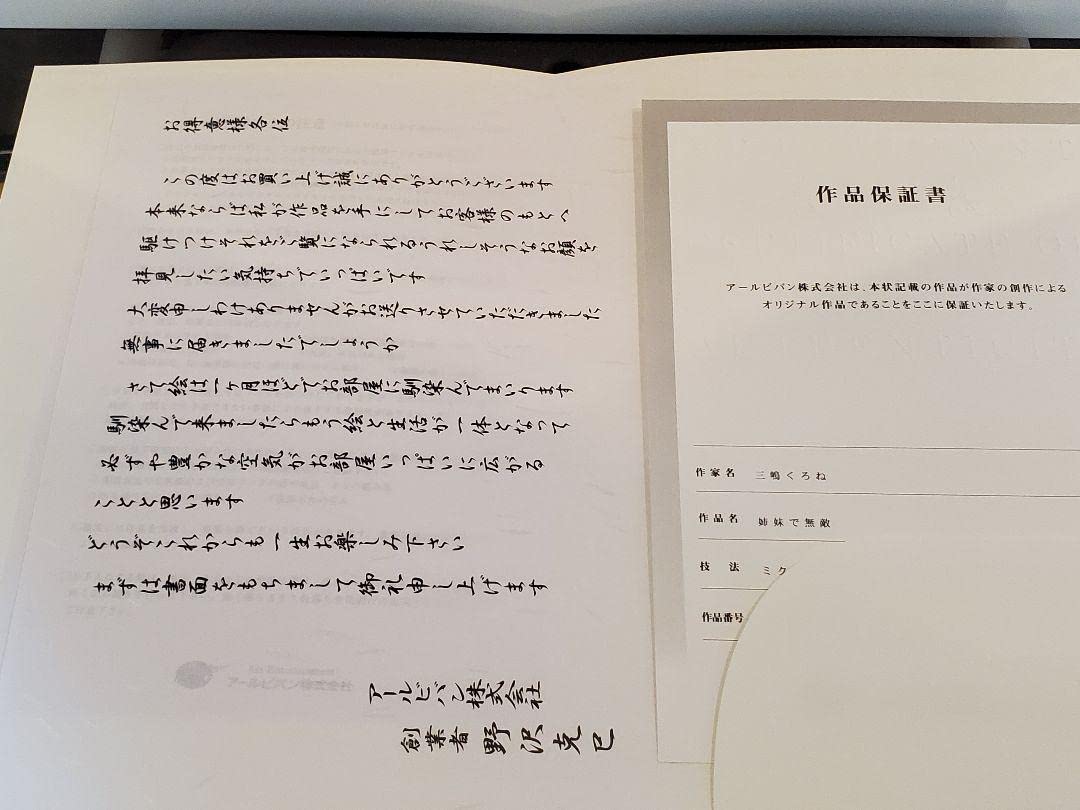 お得意様各位
この度はお買い上げ誠にありがとうございます
本来ならば私が作品を手にしてお客様のもとへ
駆けつけそれをご覧になられるうれしそうなお顔を
拝見したい気持ちでいっぱいです
大変申しわけありませんがお送りさせていただきました
無事に届きましたでしょうか
さて絵は一ヶ月ほどでお部屋に馴染んでまいります
馴染んで来ましたらもう絵と生活が一体となって
必ずや豊かな空気がお部屋いっぱいに広がる
ことと思います
どうぞこれからも一生お楽しみ下さい
まずは書面をもちまして御礼申し上げます
アールビバン株式会社
創業者 野沢克巳
作品保証書
アールビバン株式会社は、本状記載の作品が作家の創作による
オリジナル作品であることをここに保証いたします。
作家名 三嶋くろね
作品名 姉妹で無敵
技 法 ミク
作品番号
アールビバン株式会社